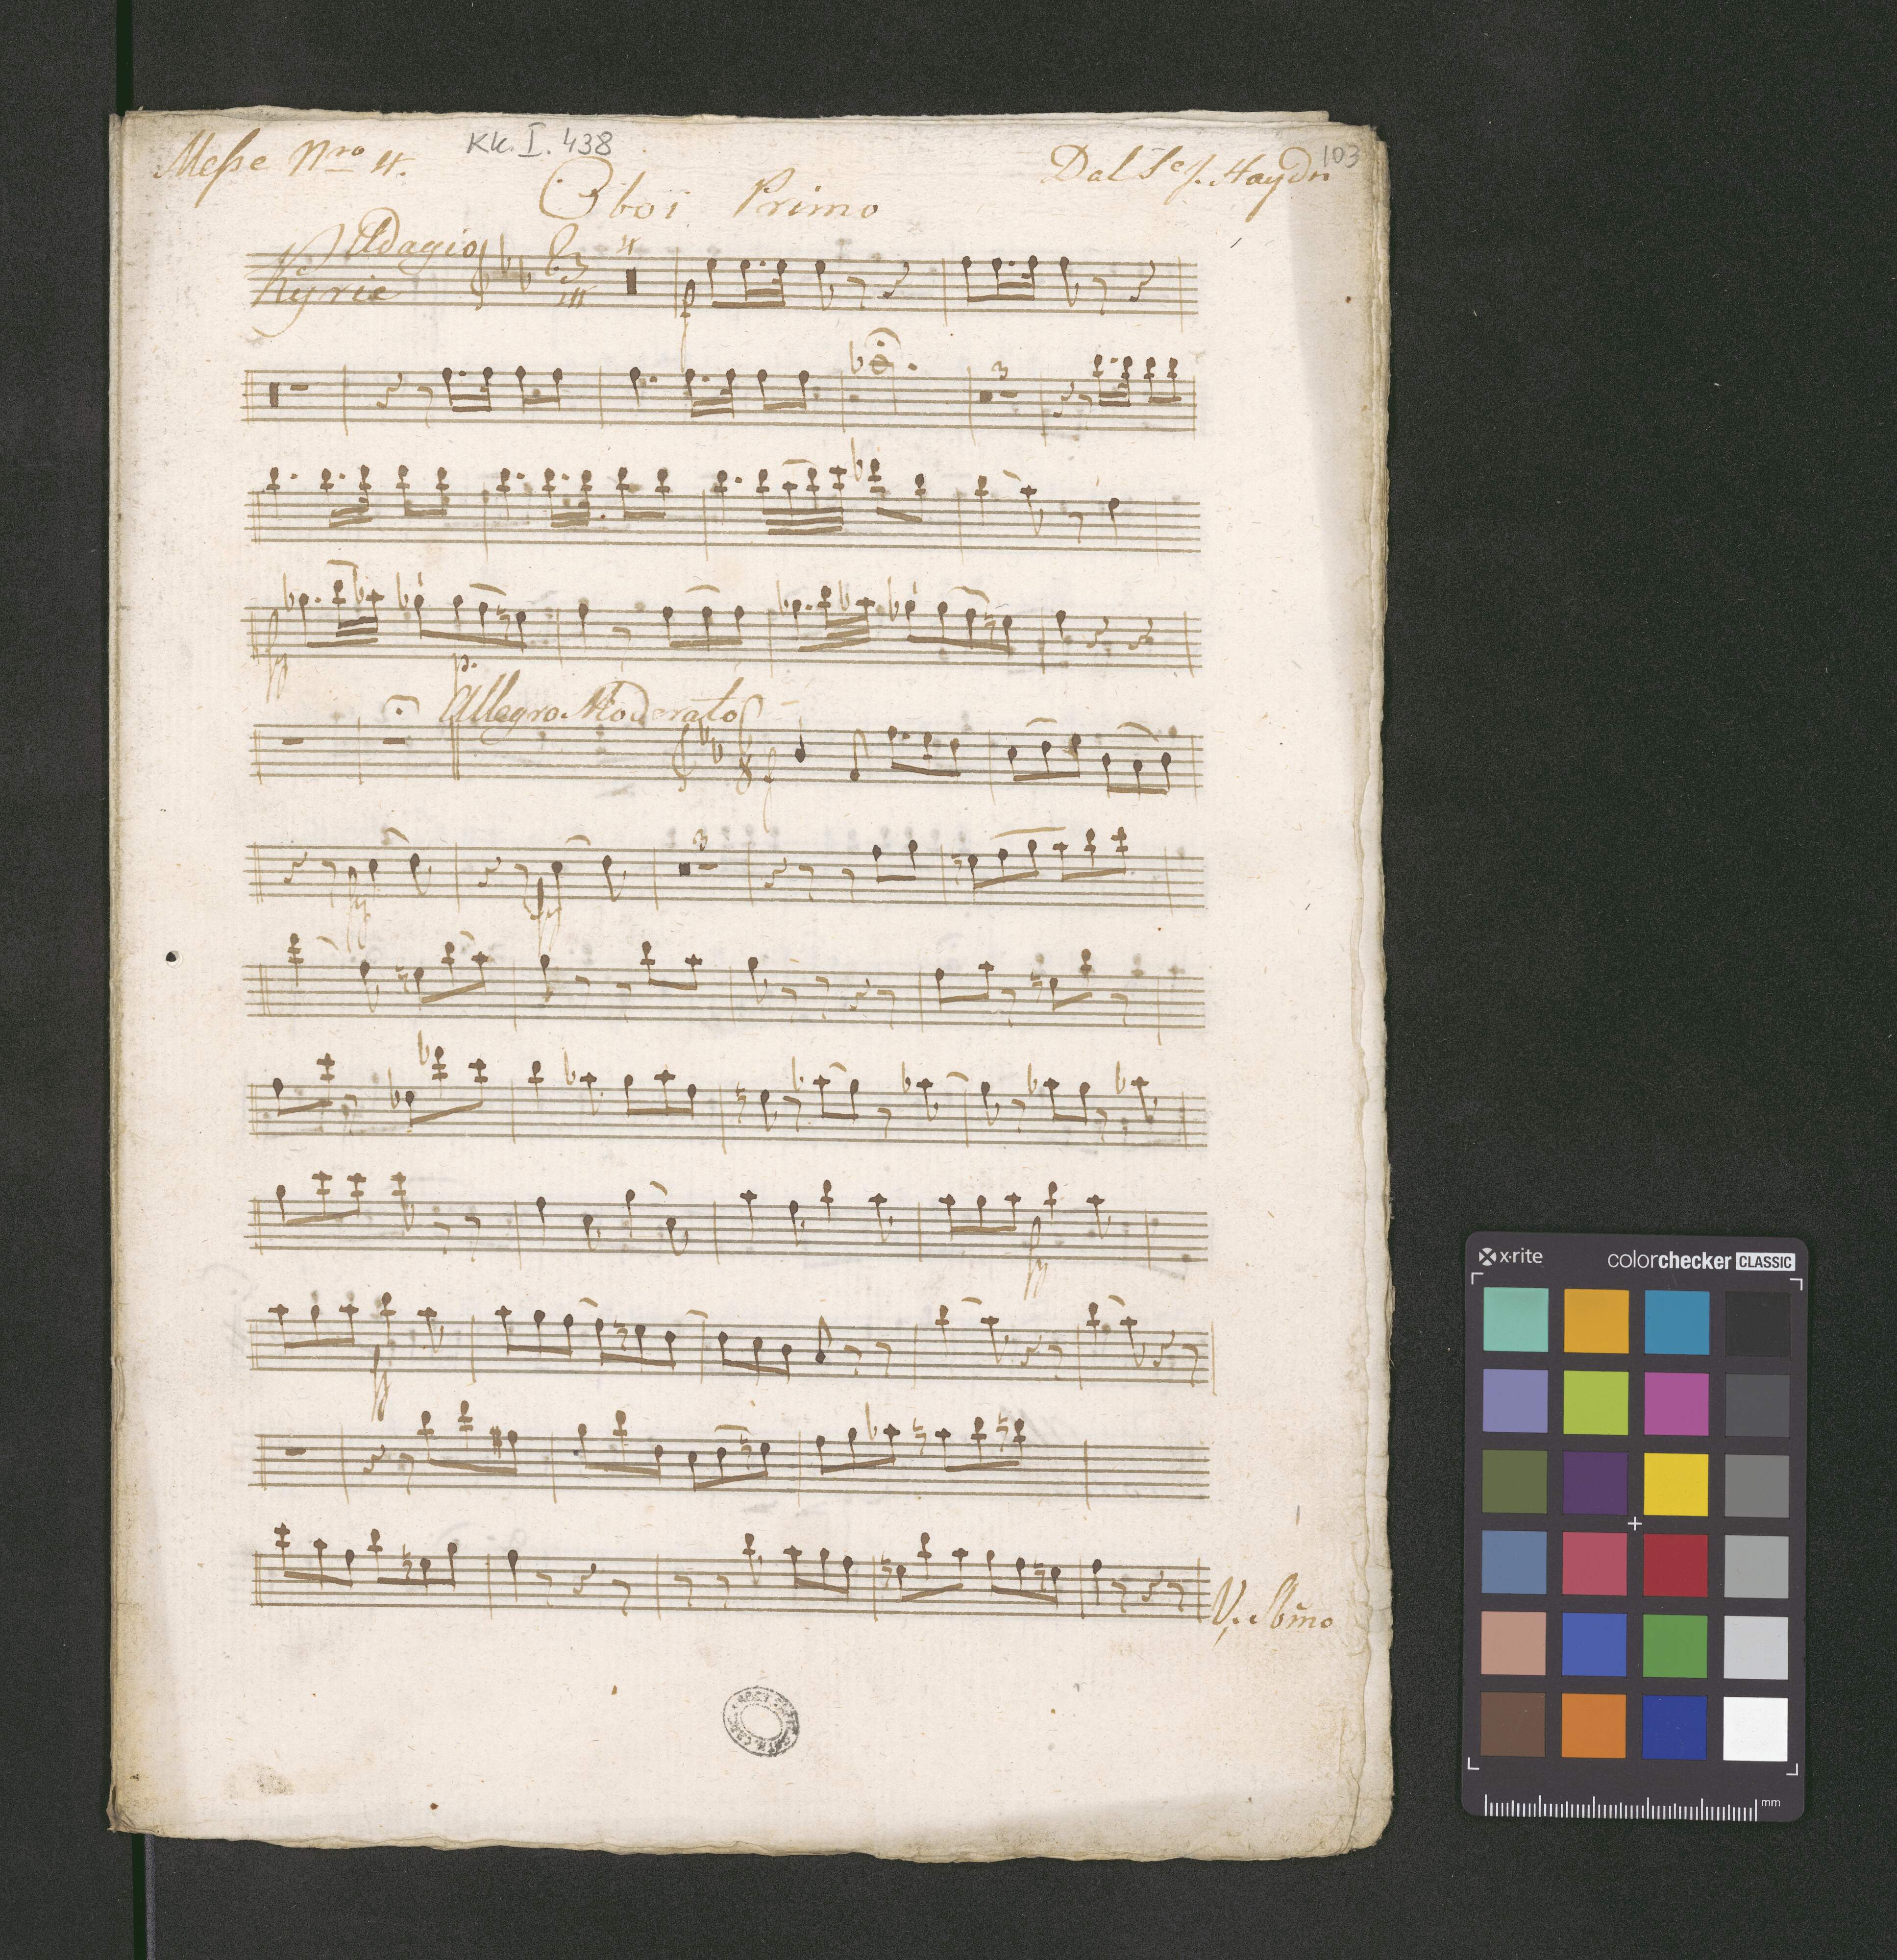 Meße Nro 4.
KK. I. 438
Dal Sg J. Haydn
103
Oboi Primo
Adagio
Kyrie
4
3
4
3
p.
Allegro Moderato
3
V. Sbmo
x·rite
colorchecker CLASSIC
mm